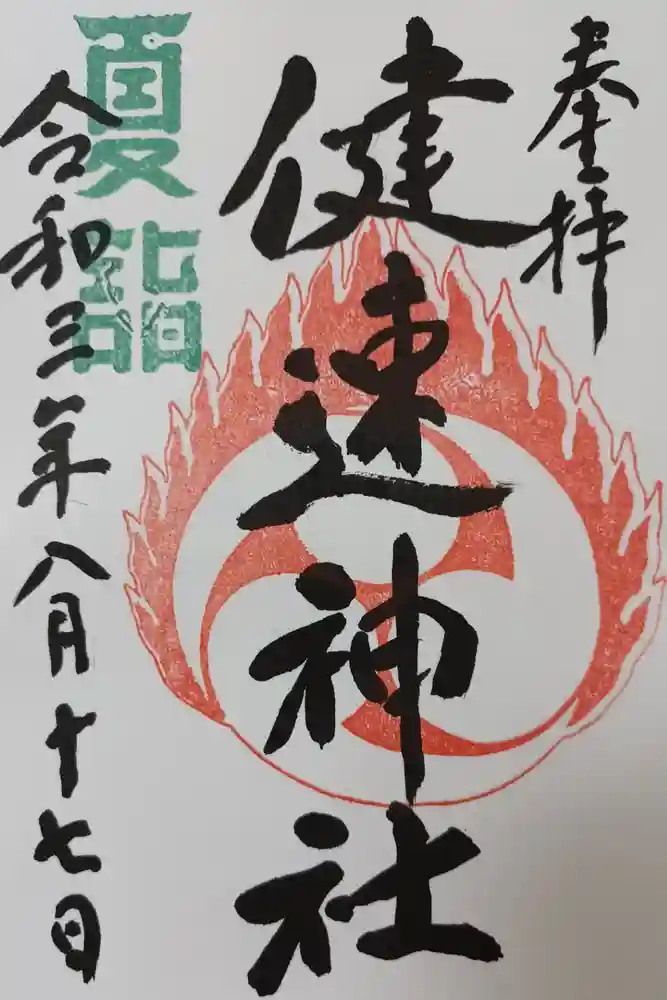 奉拝
健速神社
夏詣
令和三年八月十七日